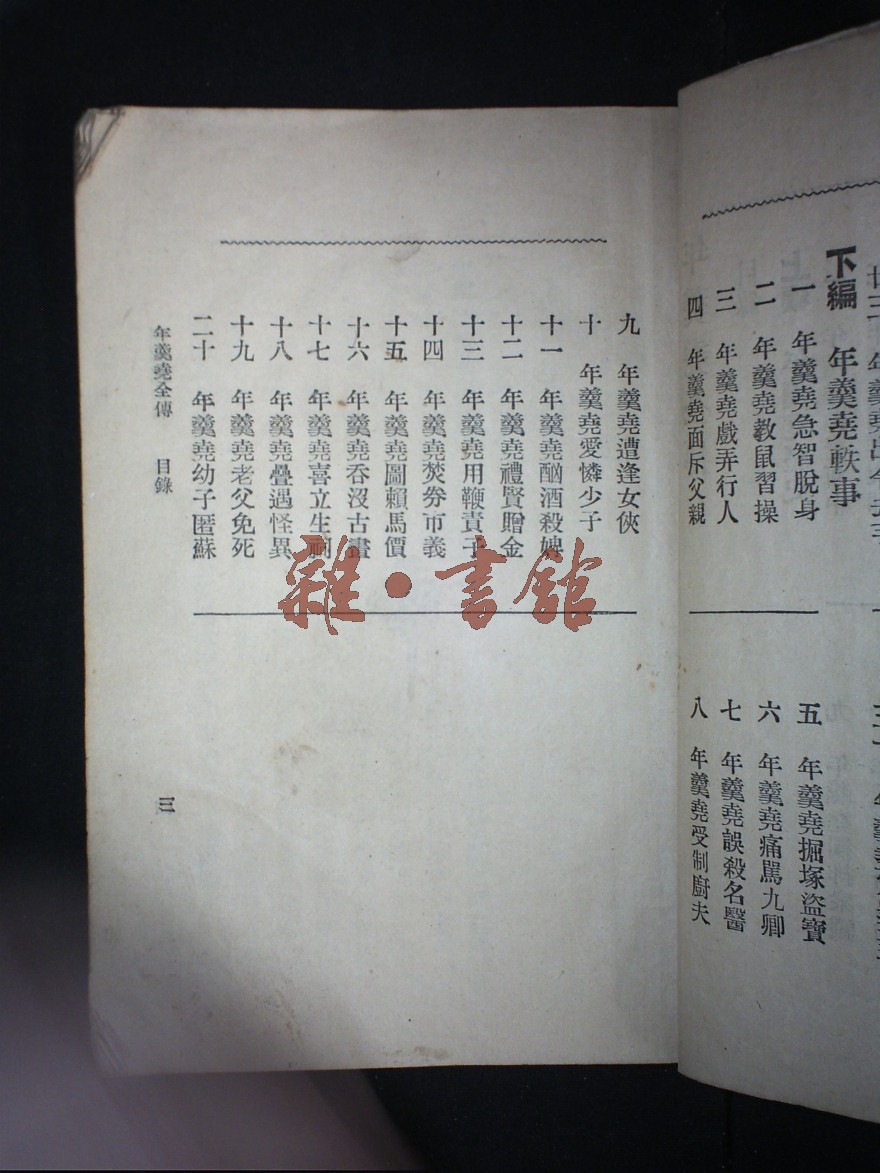 下編 年羹堯軼事
一 年羹堯急智脫身
二 年羹堯教鼠習操
三 年羹堯戲弄行人
四 年羹堯面斥父親
五 年羹堯掘塚盜寶
六 年羹堯痛駡九卿
七 年羹堯誤殺名醫
八 年羹堯受制廚夫
九 年羹堯遭逢女俠
十 年羹堯愛憐少子
十一 年羹堯酗酒殺婢
十二 年羹堯禮賢贈金
十三 年羹堯用鞭責子
十四 年羹堯焚券市義
十五 年羹堯圖賴馬價
十六 年羹堯吞沒古畫
十七 年羹堯喜立生祠
十八 年羹堯疊遇怪異
十九 年羹堯老父免死
二十 年羹堯幼子匿蘇
年羹堯全傳 目錄
三
雜·書館